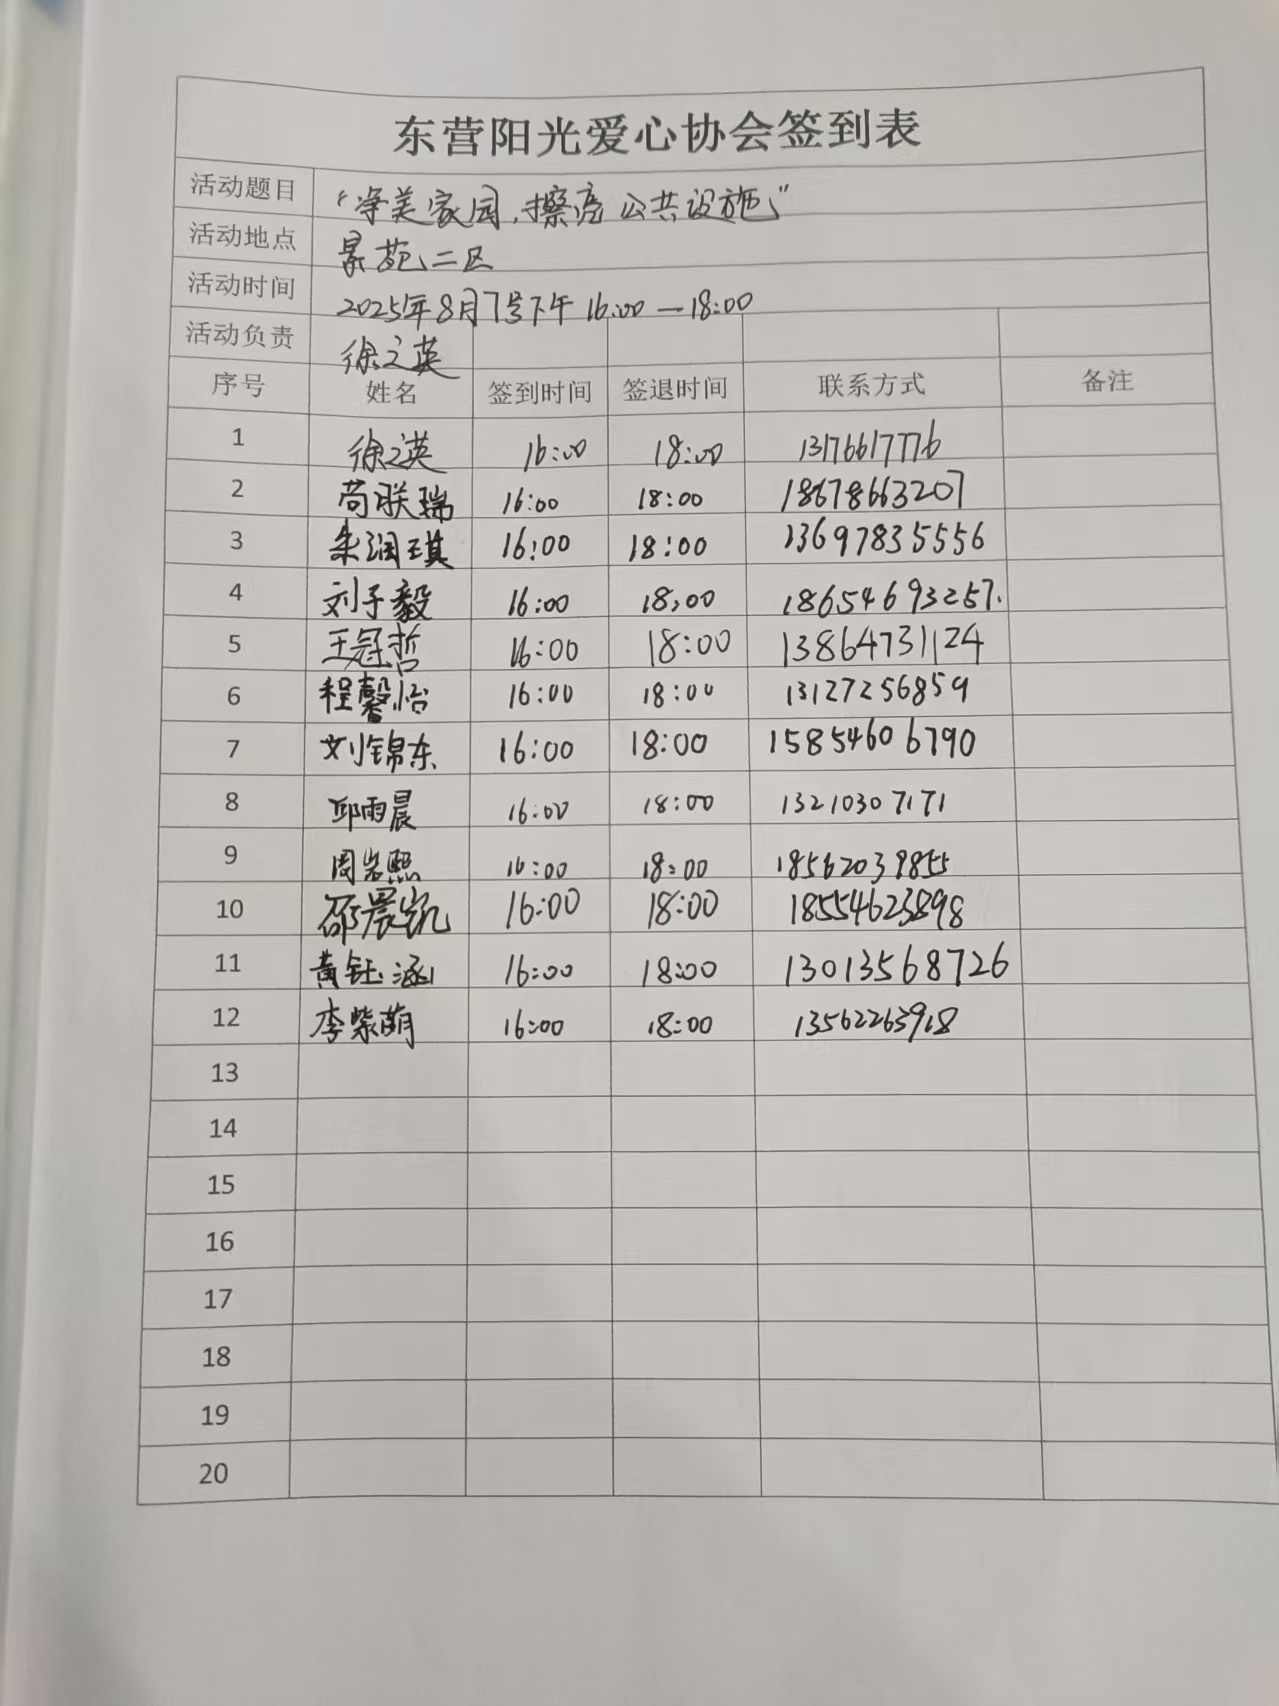 东营阳光爱心协会签到表
活动题目 “净美家园,擦亮公共设施”
活动地点 景苑二区
活动时间 2025年8月7号下午 16:00—18:00
活动负责 徐之英
序号 姓名 签到时间 签退时间 联系方式 备注
1 徐之英 16:00 18:00 13176617776
2 苟联瑞 16:00 18:00 18678663207
3 朱润琪 16:00 18:00 13697835556
4 刘子毅 16:00 18:00 18654693257.
5 王冠哲 16:00 18:00 13864731124
6 程馨怡 16:00 18:00 13127256859
7 刘锦东 16:00 18:00 15854606790
8 邱雨晨 16:00 18:00 13210307171
9 周岩熙 16:00 18:00 18562039855
10 邵晨凯 16:00 18:00 18554623898
11 黄钰涵 16:00 18:00 13013568726
12 李紫萌 16:00 18:00 13562263918
13
14
15
16
17
18
19
20